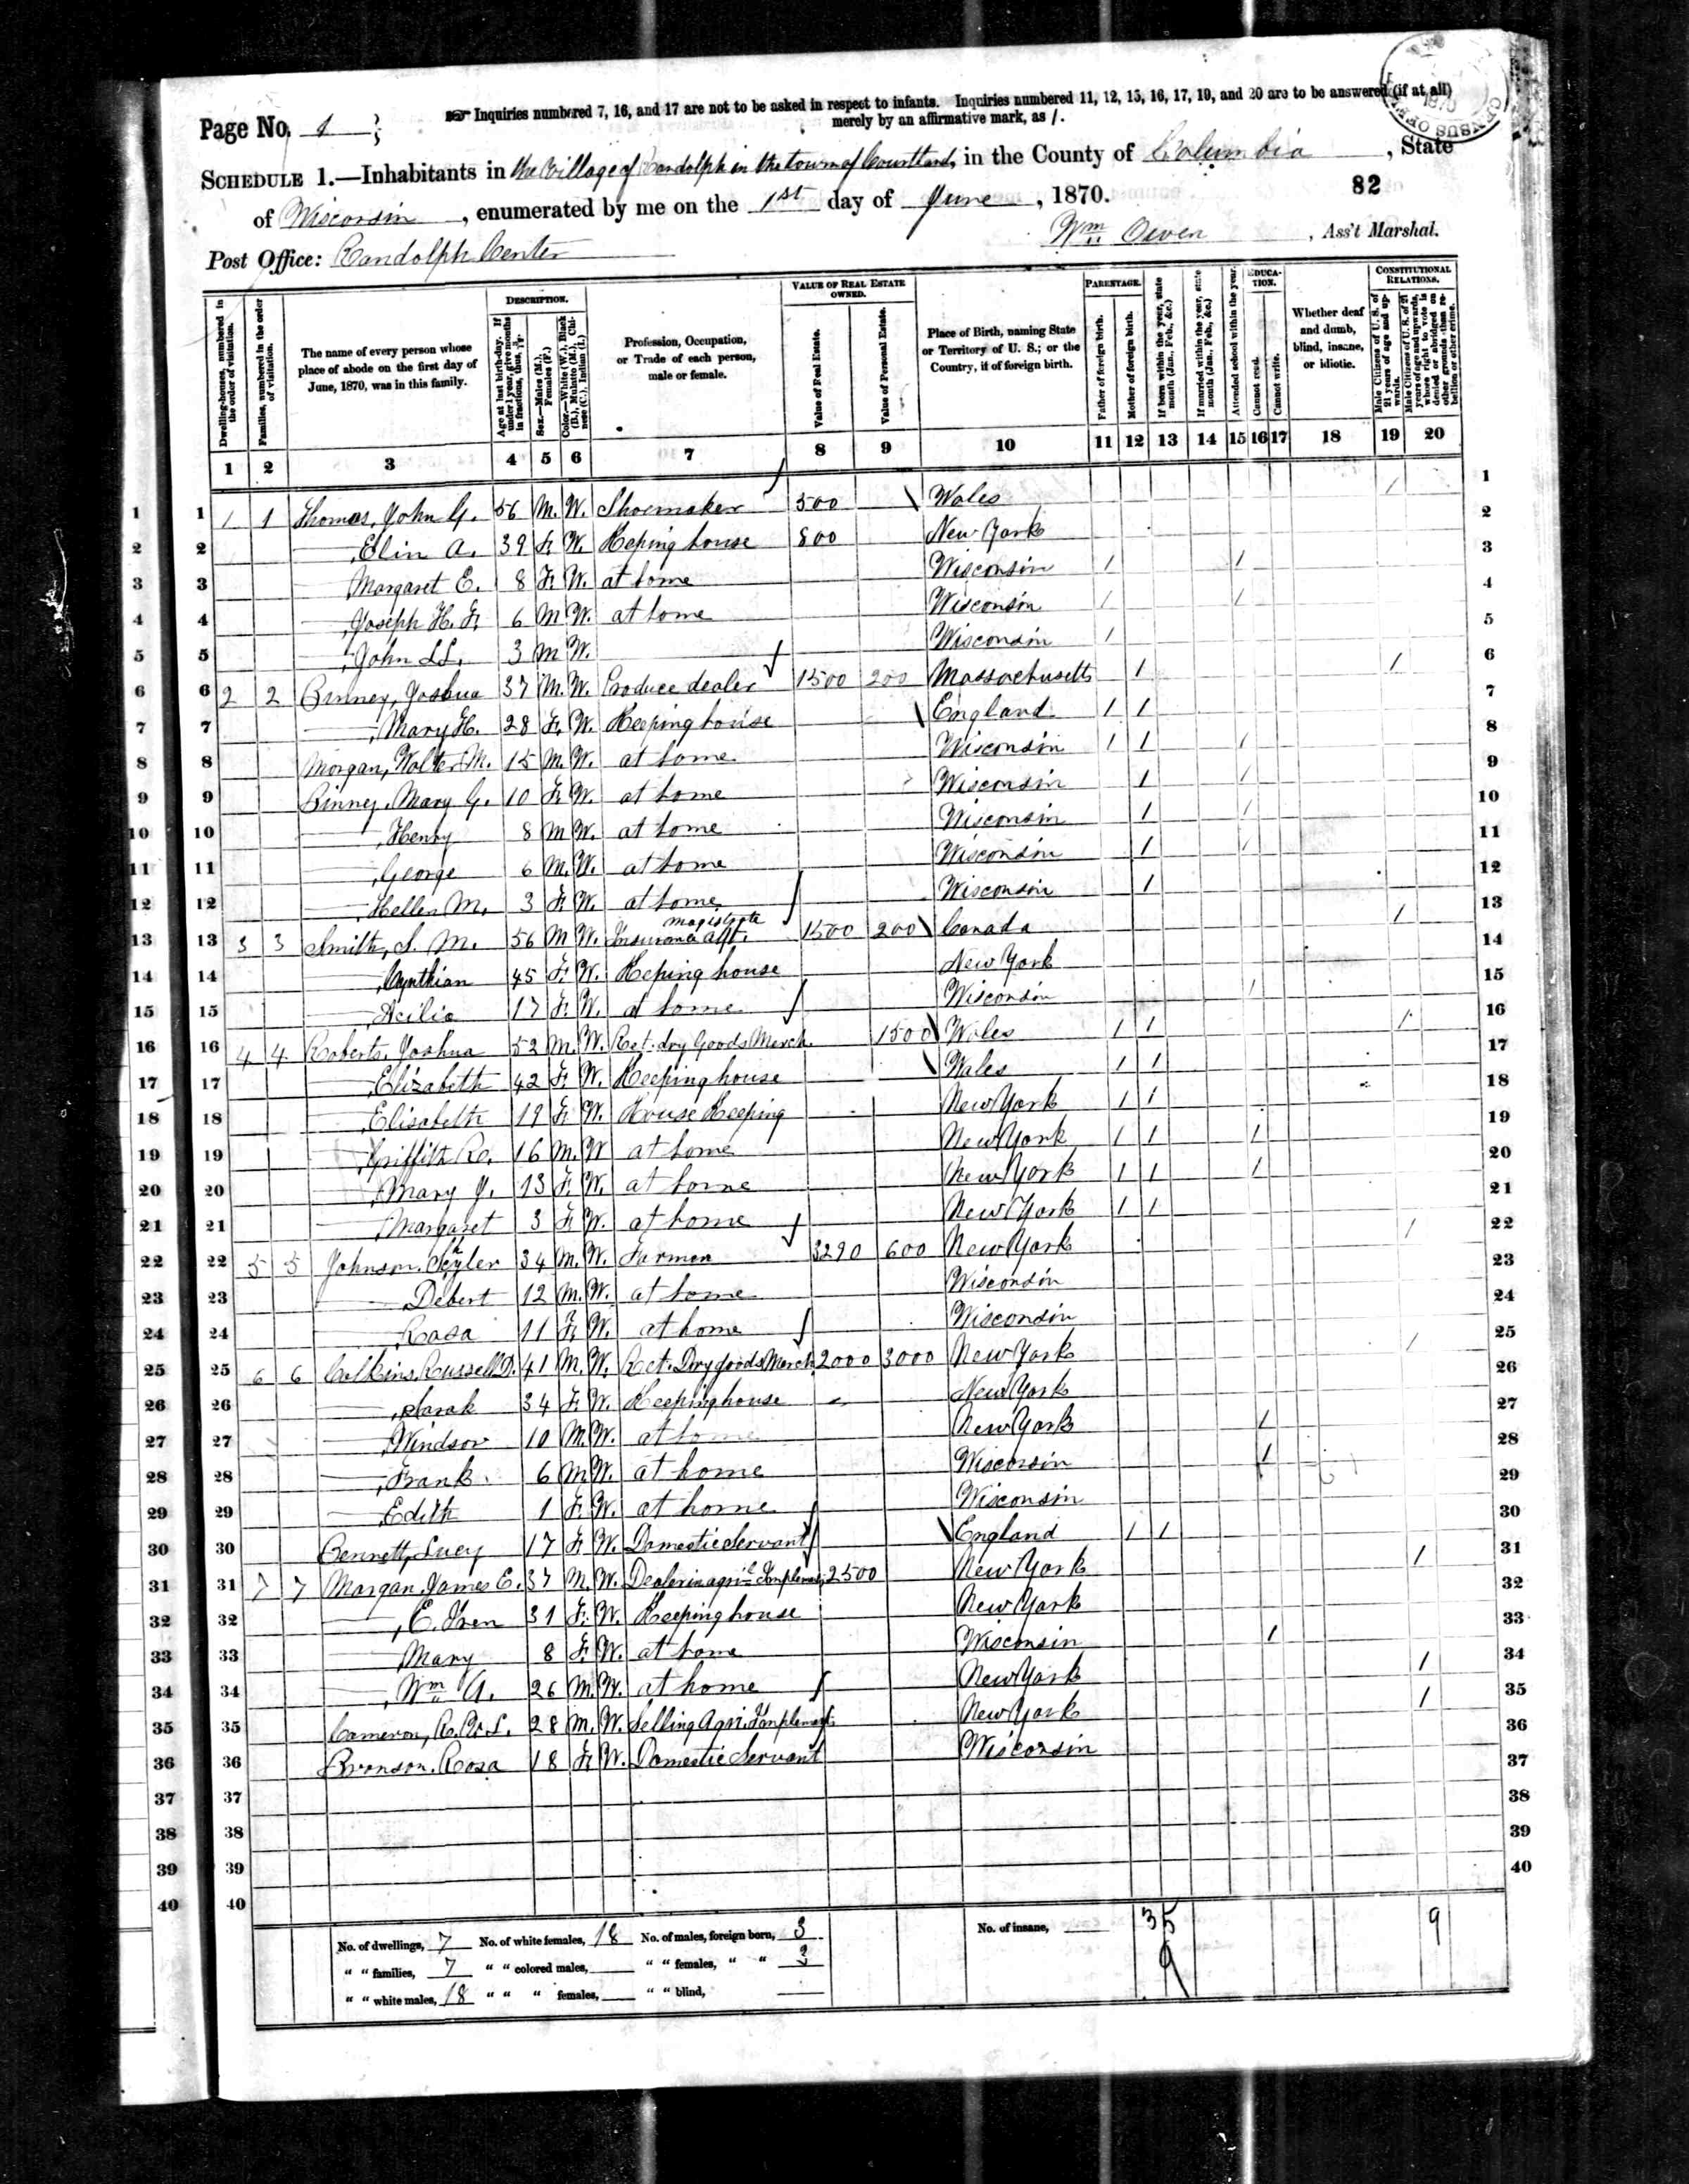 Page No. 1
Inquiries numbered 7, 16, and 17 are not to be asked in respect to infants. Inquiries numbered 11, 12, 15, 16, 17, 19, and 20 are to be answered (if at all)
merely by an affirmative mark, as /.
SCHEDULE 1.—Inhabitants in the Village of Randolph in the town of Courtland, in the County of Columbia, State
of Wisconsin, enumerated by me on the 1st day of June, 1870.
82
Post Office: Randolph Center
Wm Owen, Ass't Marshal.
Dwelling-houses, numbered in the order of visitation.
Families, numbered in the order of visitation.
The name of every person whose place of abode on the first day of June, 1870, was in this family.
DESCRIPTION.
Age at last birth-day. If under 1 year, give months in fractions, thus,
Sex.—Males (M.), Females (F.)
Color.—White (W.), Black (B.), Mulatto (M.), Chinese (C.), Indian (I.)
Profession, Occupation, or Trade of each person, male or female.
VALUE OF REAL ESTATE OWNED.
Value of Real Estate.
Value of Personal Estate.
Place of Birth, naming State or Territory of U. S.; or the Country, if of foreign birth.
PARENTAGE.
Father of foreign birth.
Mother of foreign birth.
If born within the year, state month (Jan., Feb., &c.)
If married within the year, state month (Jan., Feb., &c.)
Attended school within the year.
EDUCATION.
Cannot read.
Cannot write.
Whether deaf and dumb, blind, insane, or idiotic.
CONSTITUTIONAL RELATIONS.
Male Citizens of U. S. of 21 years of age and upwards.
Male Citizens of U. S. of 21 years of age and upwards, whose right to vote is denied or abridged on other grounds than rebellion or other crime.
1 2 3 4 5 6 7 8 9 10 11 12 13 14 15 16 17 18 19 20
1 1 1 Thomas, John G. 56 M. W. Shoemaker 500 Wales / 1
2 ——, Elin A. 39 F. W. Keping house 800 New York 2
3 ——, Margaret E. 8 F. W. at home Wisconsin / / 3
4 ——, Joseph H. F. 6 M W. at home Wisconsin / / 4
5 ——, John Ll. 3 M W. Wisconsin / 5
6 2 2 Binney, Joshua 37 M. W. Produce dealer 1500 200 Massachusetts / / 6
7 ——, Mary H. 28 F. W. Keeping house England / / 7
8 Morgan, Walter M. 15 M. W. at home Wisconsin / / / 8
9 Binney, Mary G. 10 F. W. at home Wisconsin / / 9
10 ——, Henry 8 M W. at home Wisconsin / / 10
11 ——, George 6 M. W. at home Wisconsin / / 11
12 ——, Hellen M. 3 F. W. at home Wisconsin / 12
13 3 3 Smith, S. M. 56 M W. Insurance agt. magistrate 1500 200 Canada / 13
14 ——, Cynthian 45 F. W. Keping house New York 14
15 ——, 17 F. W. at home Wisconsin / 15
16 4 4 Roberts, Joshua 52 M. W. Ret. dry Goods Merch. 1500 Wales / / / 16
17 ——, Elizabeth 42 F. W. Keeping house Wales / / 17
18 ——, Elisabeth 19 F. W. House Keeping New York / / 18
19 ——, Griffith R. 16 M. W at home New York / / / 19
20 ——, Mary J. 13 F. W. at home New York / / / 20
21 ——, Margaret 3 F. W. at home New York / / 21
22 5 5 Johnson, 34 M. W. Farmer 3290 600 New York / 22
23 ——, Debert 12 M. W. at home Wisconsin 23
24 ——, Rosa 11 F. W. at home Wisconsin 24
25 6 6 Calkins, Russell D. 41 M. W. Ret. Dry goods Merch 2000 3000 New York / 25
26 ——, Sarah 34 F. W. Keeping house New York 26
27 ——, Windsor 10 M. W. at home New York / 27
28 ——, Frank. 6 M W. at home Wisconsin / 28
29 ——, Edith 1 F. W. at home Wisconsin 29
30 Bennett, Lucy 17 F. W. Domestic Servant England / / 30
31 7 7 Morgan, James E. 37 M. W. Dealer in agril Implements 2500 New York / 31
32 ——, E. Iren 31 F. W. Keeping house New York 32
33 ——, Mary 8 F. W. at home Wisconsin / 33
34 ——, Wm A. 26 M. W. at home New York / 34
35 Cameron, R. 28 M. W. Selling Agri. Implements New York / 35
36 Bronson, Rosa 18 F. W. Domestic Servant Wisconsin 36
37 37
38 38
39 39
40 40
No. of dwellings, 7 No. of white females, 18 No. of males, foreign born, 3 No. of insane, 35 9
" " families, 7 " " colored males, " " females, " " 3 9
" " white males, 18 " " " females, " " blind,